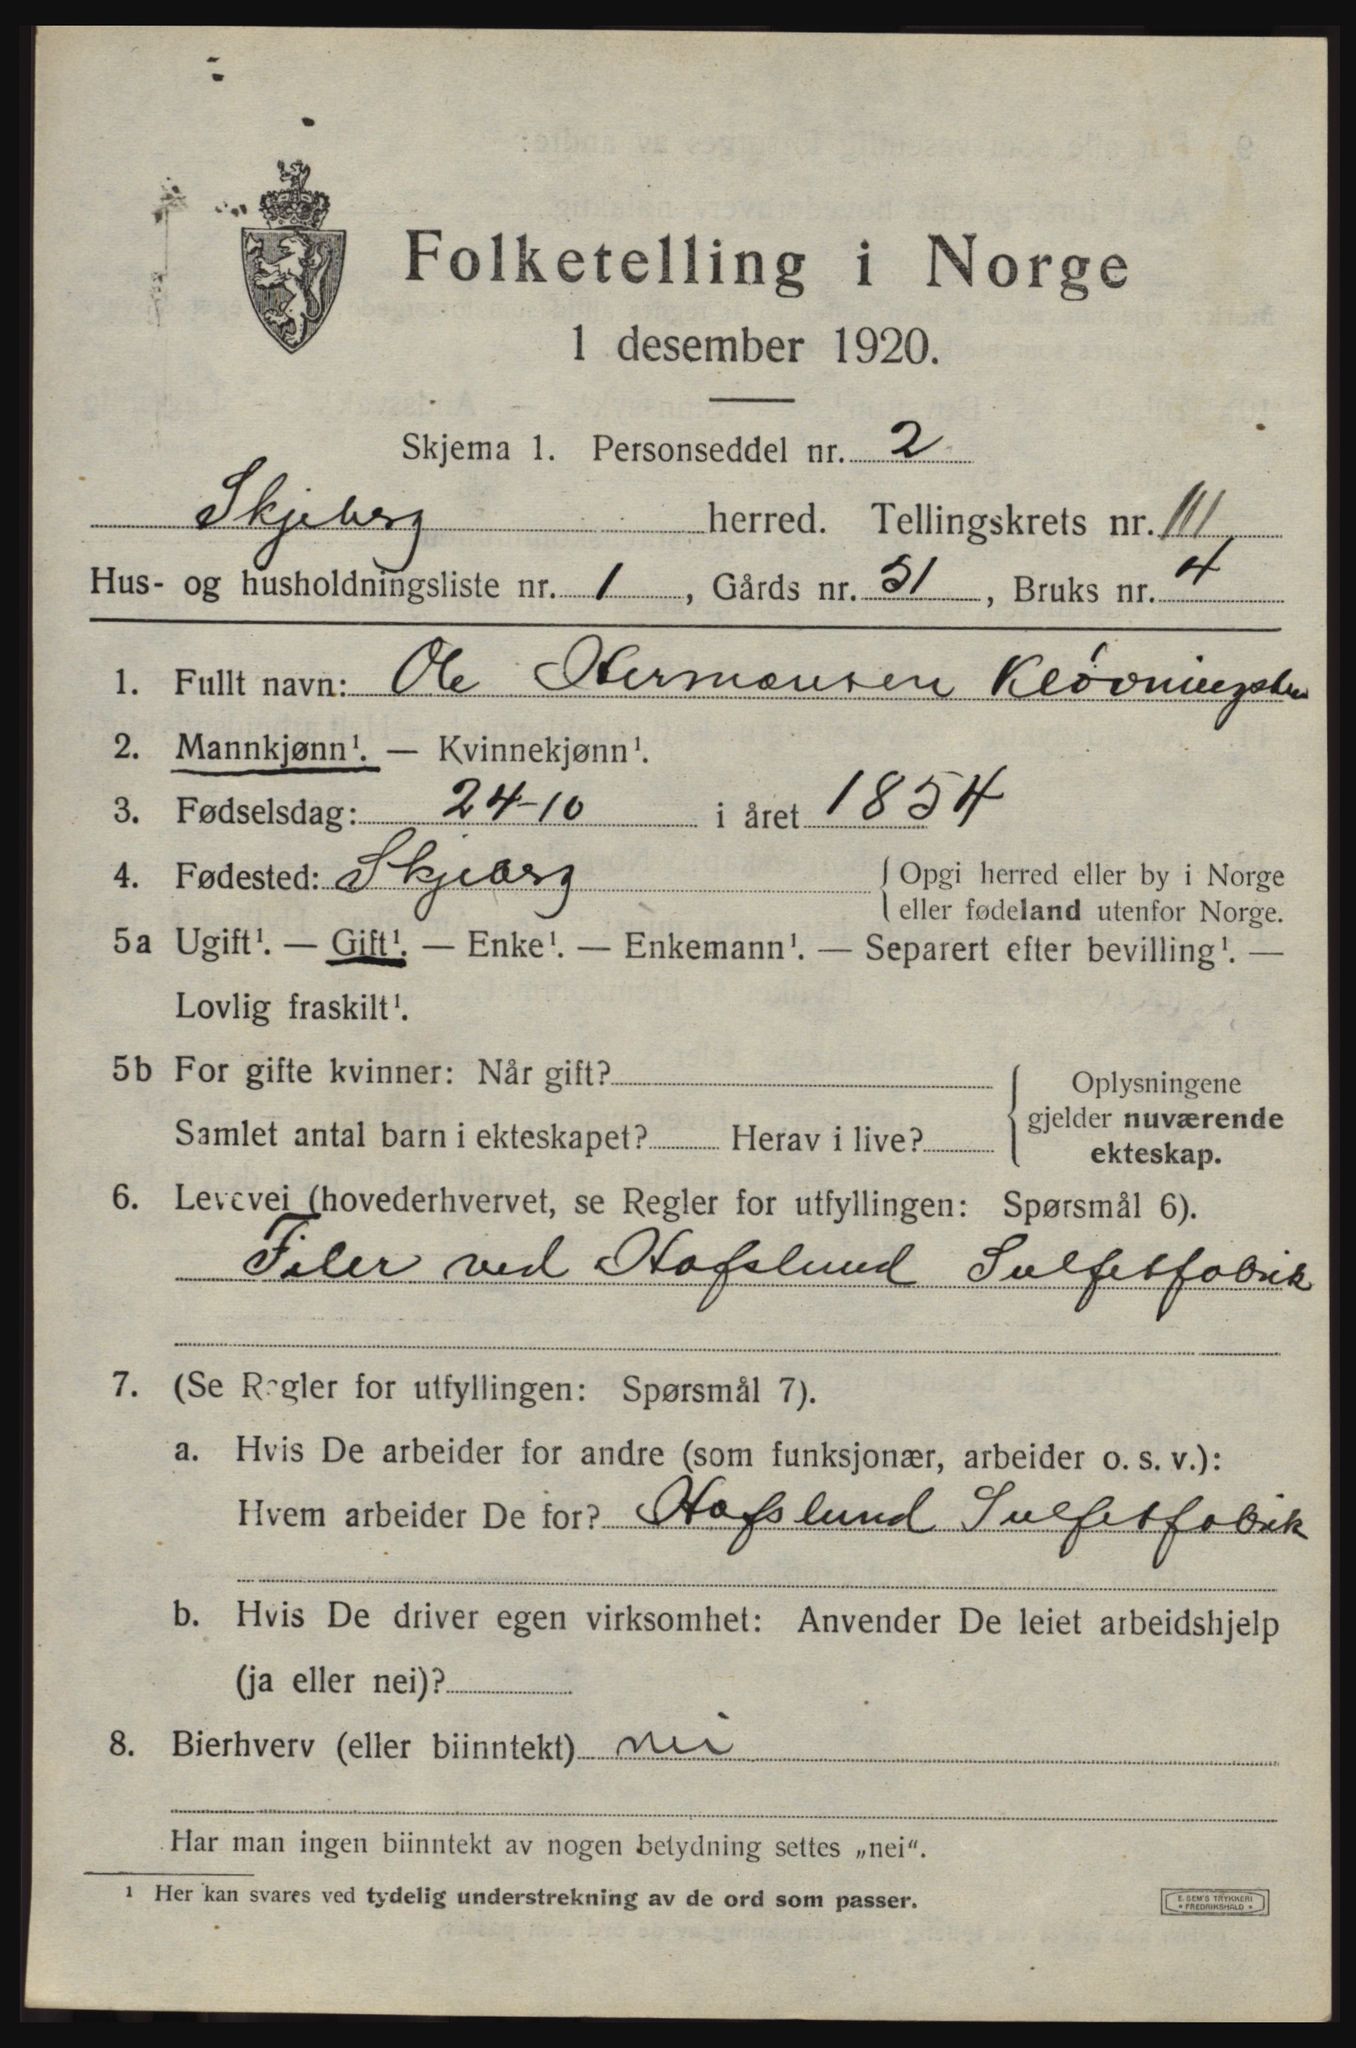 Folketelling i Norge
1 desember 1920.
Skjema 1. Personseddel nr. 2
Skjeberg herred. Tellingskrets nr. III
Hus- og husholdningsliste nr. 1, Gårds nr. 51, Bruks nr. 4
1. Fullt navn: Ole Hermansen Kløvningsten
2. Mannkjønn¹. — Kvinnekjønn¹.
3. Fødselsdag: 24-10 i året 1854
4. Fødested: Skjeberg { Opgi herred eller by i Norge
eller fødeland utenfor Norge.
5a Ugift¹. — Gift¹. — Enke¹. — Enkemann¹. — Separert efter bevilling¹. —
Lovlig fraskilt¹.
5b For gifte kvinner: Når gift?
Samlet antal barn i ekteskapet? Herav i live?
{ Oplysningene
gjelder nuværende
ekteskap.
6. Levevei (hovederhvervet, se Regler for utfyllingen: Spørsmål 6).
Filer ved Hafslund Sulfetfabrik
7. (Se Regler for utfyllingen: Spørsmål 7).
a. Hvis De arbeider for andre (som funksjonær, arbeider o. s. v.):
Hvem arbeider De for? Hafslund Sulfetfabrik
b. Hvis De driver egen virksomhet: Anvender De leiet arbeidshjelp
(ja eller nei)?
8. Bierhverv (eller biinntekt) nei
Har man ingen biinntekt av nogen betydning settes „nei“.
¹ Her kan svares ved tydelig understrekning av de ord som passer.
E. SEM'S TRYKKERI
* FREDRIKSHALD *